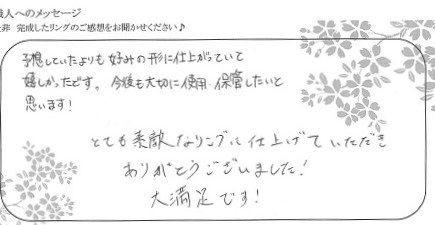 職人へのメッセージ
是非 完成したリングのご感想をお聞かせください♪
予想していたよりも好みの形に仕上がっていて
嬉しかったです。今後も大切に使用・保管したいと
思います!
とても素敵なリングに仕上げていただき
ありがとうございました!
大満足です!